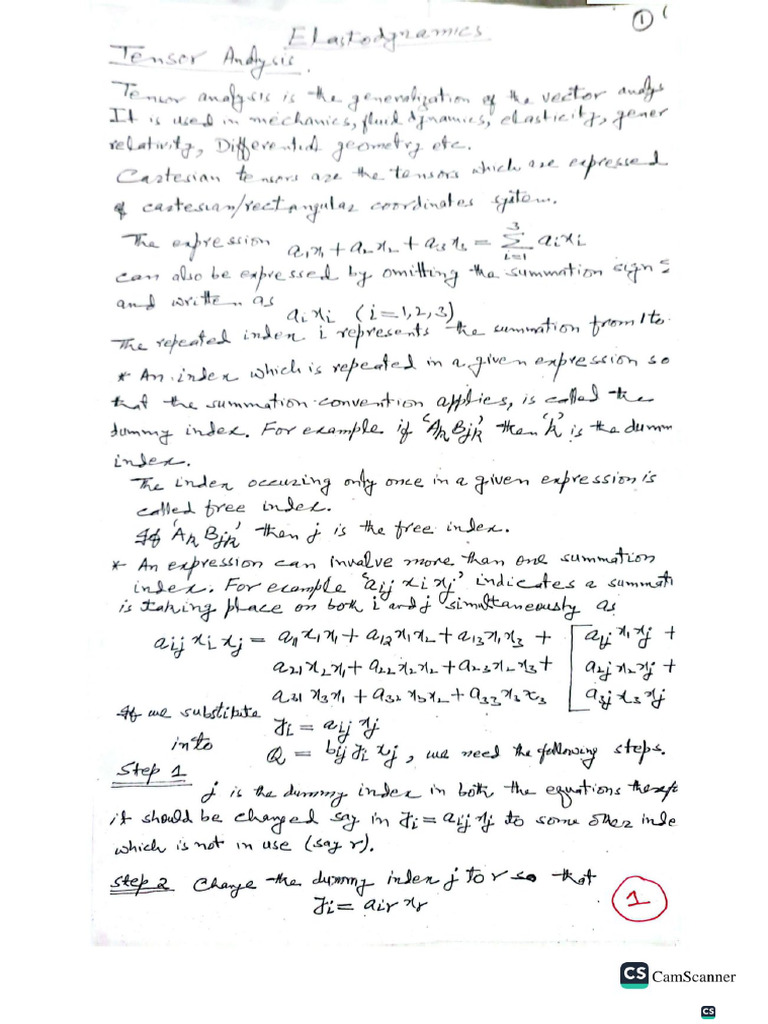 1 (
Elastodynamics
Tensor Analysis.
Tensor analysis is the generalization of the vector analys
It is used in mechanics, fluid dynamics, elasticity, gener
relativity, Differential geometry etc.
Cartesian tensors are the tensors which are expressed
of cartesian/rectangular coordinates system.
The expression a₁x₁ + a₂x₂ + a₃x₃ = ∑³ᵢ₌₁ aᵢxᵢ
can also be expressed by omitting the summation sign Σ
and written as
aᵢxᵢ (i=1,2,3)
The repeated index i represents the summation from 1 to
* An index which is repeated in a given expression so
that the summation convention applies, is called the
dummy index. For example if 'AₖBⱼₖ' then 'k' is the dumm
index.
The index occuring only once in a given expression is
called free index.
If 'AₖBⱼₖ' then j is the free index.
* An expression can involve more than one summation
index. For example 'aᵢⱼxᵢxⱼ' indicates a summati
is taking place on both i and j simultaneously as
aᵢⱼxᵢxⱼ = a₁₁x₁x₁ + a₁₂x₁x₂ + a₁₃x₁x₃ + [a₁ⱼx₁xⱼ +
a₂₁x₂x₁ + a₂₂x₂x₂ + a₂₃x₂x₃ + a₂ⱼx₂xⱼ +
a₃₁x₃x₁ + a₃₂x₃x₂ + a₃₃x₃x₃ a₃ⱼx₃xⱼ
If we substitute yᵢ = aᵢⱼxⱼ
into Q = bᵢⱼyᵢxⱼ, we need the following steps.
Step 1
j is the dummy index in both the equations theref
it should be changed say in yᵢ = aᵢⱼxⱼ to some other inde
which is not in use (say r).
Step 2 Change the dummy index j to r so that
yᵢ = aᵢᵣxᵣ
1
CS CamScanner
CS